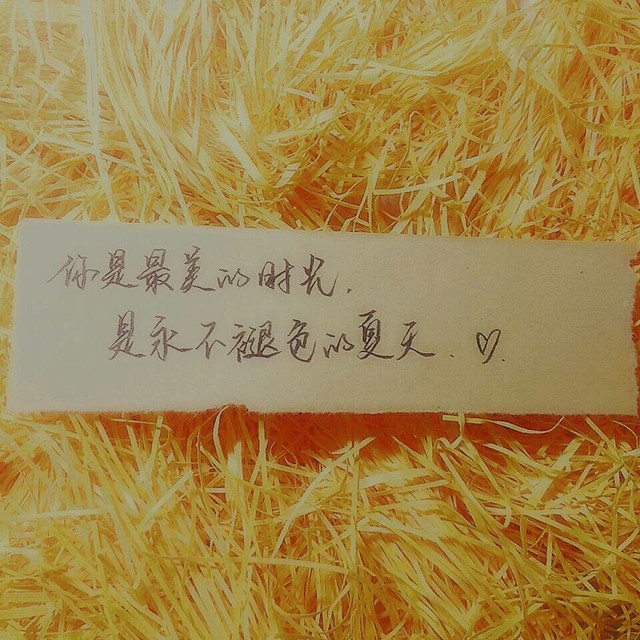 你是最美的时光.
是永不褪色的夏天.♡.